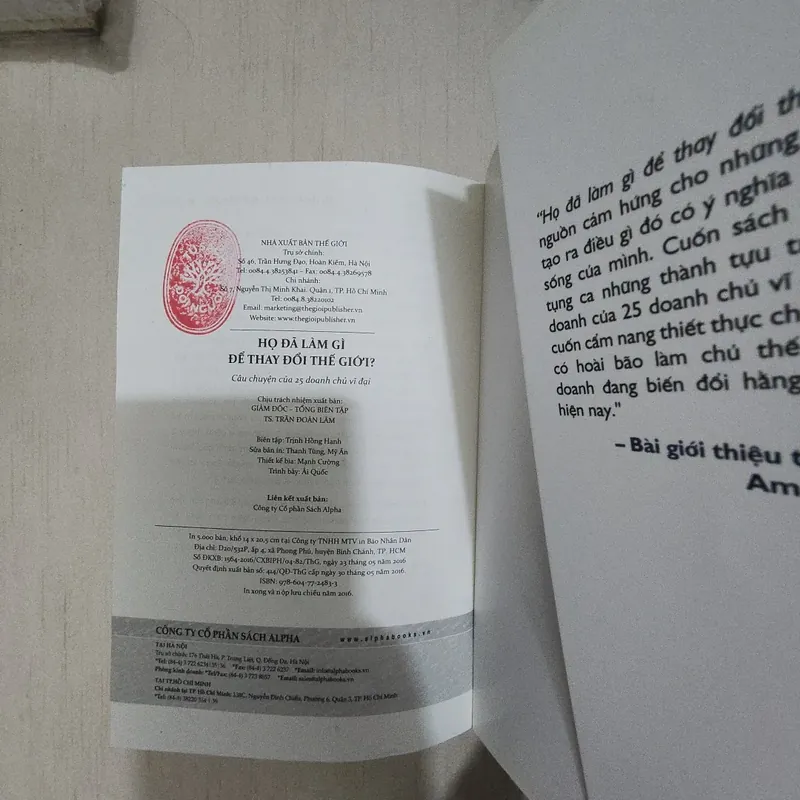 NHÀ XUẤT BẢN THẾ GIỚI
Trụ sở chính:
Số 46, Trần Hưng Đạo, Hoàn Kiếm, Hà Nội
Tel: 0084.4.38253841 – Fax: 0084.4.38269578
Chi nhánh:
Số 7, Nguyễn Thị Minh Khai, Quận 1, TP. Hồ Chí Minh
Tel: 0084.8.38220102
Email: marketing@thegioipublisher.vn
Website: www.thegioipublisher.vn
HỌ ĐÃ LÀM GÌ
ĐỂ THAY ĐỔI THẾ GIỚI?
Câu chuyện của 25 doanh chủ vĩ đại
Chịu trách nhiệm xuất bản:
GIÁM ĐỐC – TỔNG BIÊN TẬP
TS. TRẦN ĐOÀN LÂM
Biên tập: Trịnh Hồng Hạnh
Sửa bản in: Thanh Tùng, Mỹ Ân
Thiết kế bìa: Mạnh Cường
Trình bày: Ái Quốc
Liên kết xuất bản:
Công ty Cổ phần Sách Alpha
In 5.000 bản, khổ 14 x 20,5 cm tại Công ty TNHH MTV in Báo Nhân Dân
Địa chỉ: D20/532P, ấp 4, xã Phong Phú, huyện Bình Chánh, TP. HCM
Số ĐKXB: 1564-2016/CXBIPH/04-82/ThG, ngày 23 tháng 05 năm 2016
Quyết định xuất bản số: 424/QĐ-ThG cấp ngày 30 tháng 05 năm 2016.
ISBN: 978-604-77-2483-3
In xong và nộp lưu chiểu năm 2016.
CÔNG TY CỔ PHẦN SÁCH ALPHA www.alphabooks.vn
TẠI HÀ NỘI
Trụ sở chính: 176 Thái Hà, P. Trung Liệt, Q. Đống Đa, Hà Nội
*Tel: (84-4) 3 722 6234/35/36 *Fax: (84-4) 3 722 6237 *Email: info@alphabooks.vn
Phòng kinh doanh: *Tel/Fax: (84-4) 3 773 8857
TẠI TP.HỒ CHÍ MINH
Chi nhánh tại TP. Hồ Chí Minh: Nguyễn Đình Chiểu, Phường 6, Quận 3, TP. Hồ Chí Minh
*Tel: (84-8) 38220 334 / 35
"Họ đã làm gì để thay đổi
nguồn cảm hứng cho những
tạo ra điều gì đó có ý nghĩa
sống của mình. Cuốn sách
tụng ca những thành tựu
doanh của 25 doanh chủ vĩ
cuốn cẩm nang thiết thực
có hoài bão làm chủ thế
doanh đang biến đổi hằng
hiện nay."
– Bài giới thiệu